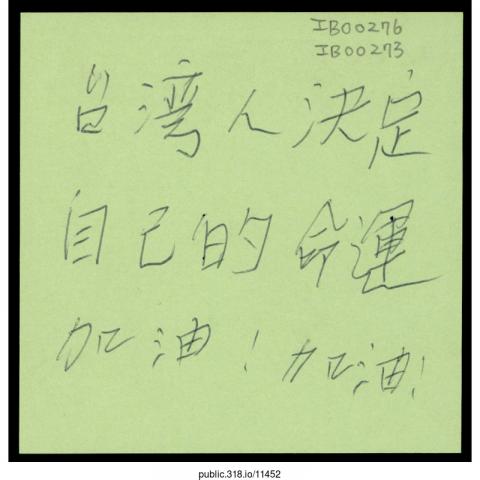 IB00276
IB00273
台湾人決定
自己的命運
加油！加油！
public.318.io/11452